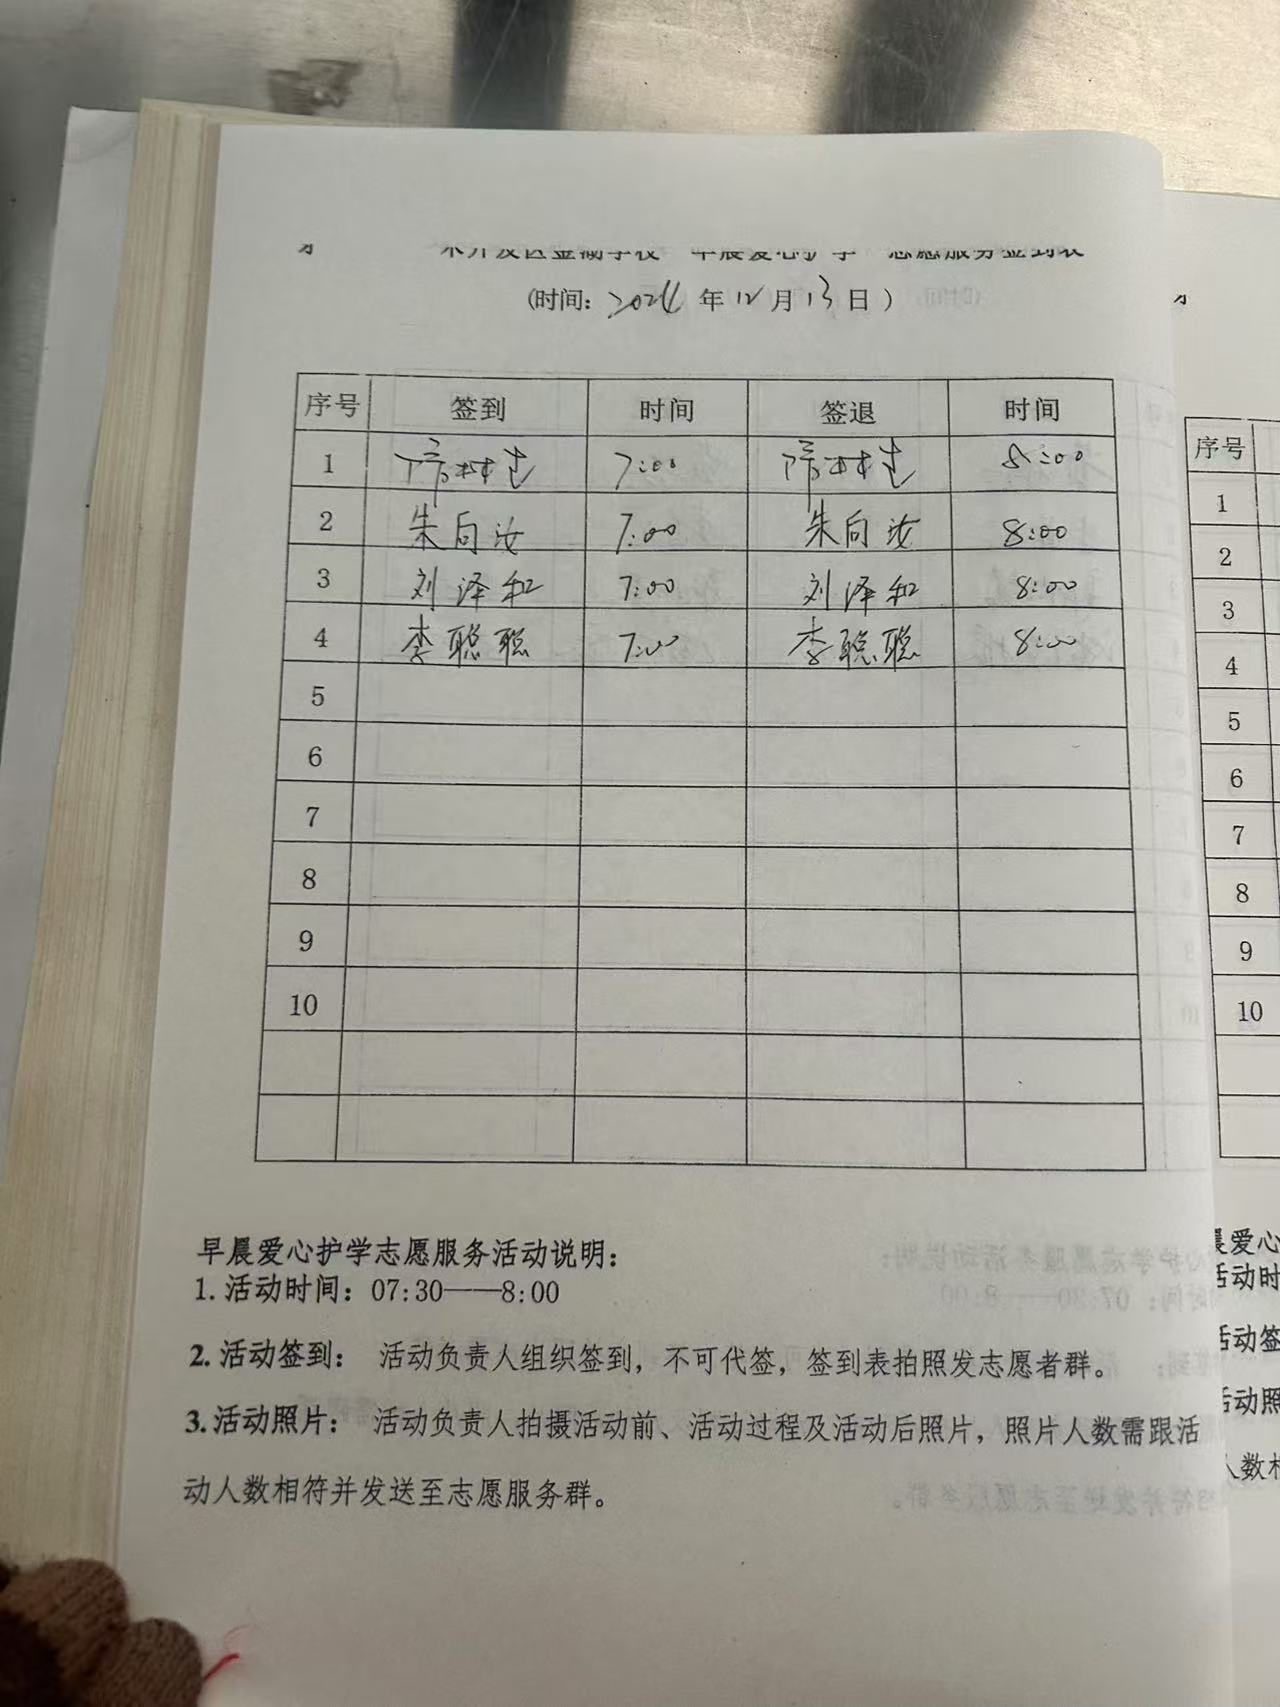 术开发区金湖学校"早晨爱心护学"志愿服务签到表
(时间: 2024 年 12 月 13 日 )
序号 签到 时间 签退 时间
1 7:00 8:00
2 朱向汝 7:00 朱向汝 8:00
3 刘泽和 7:00 刘泽和 8:00
4 李聪聪 7:00 李聪聪 8:00
5
6
7
8
9
10
早晨爱心护学志愿服务活动说明:
1. 活动时间: 07:30——8:00
2. 活动签到: 活动负责人组织签到, 不可代签, 签到表拍照发志愿者群。
3. 活动照片: 活动负责人拍摄活动前、活动过程及活动后照片, 照片人数需跟活
动人数相符并发送至志愿服务群。
序号
1
2
3
4
5
6
7
8
9
10
晨爱心
活动时
活动签
活动照
人数相